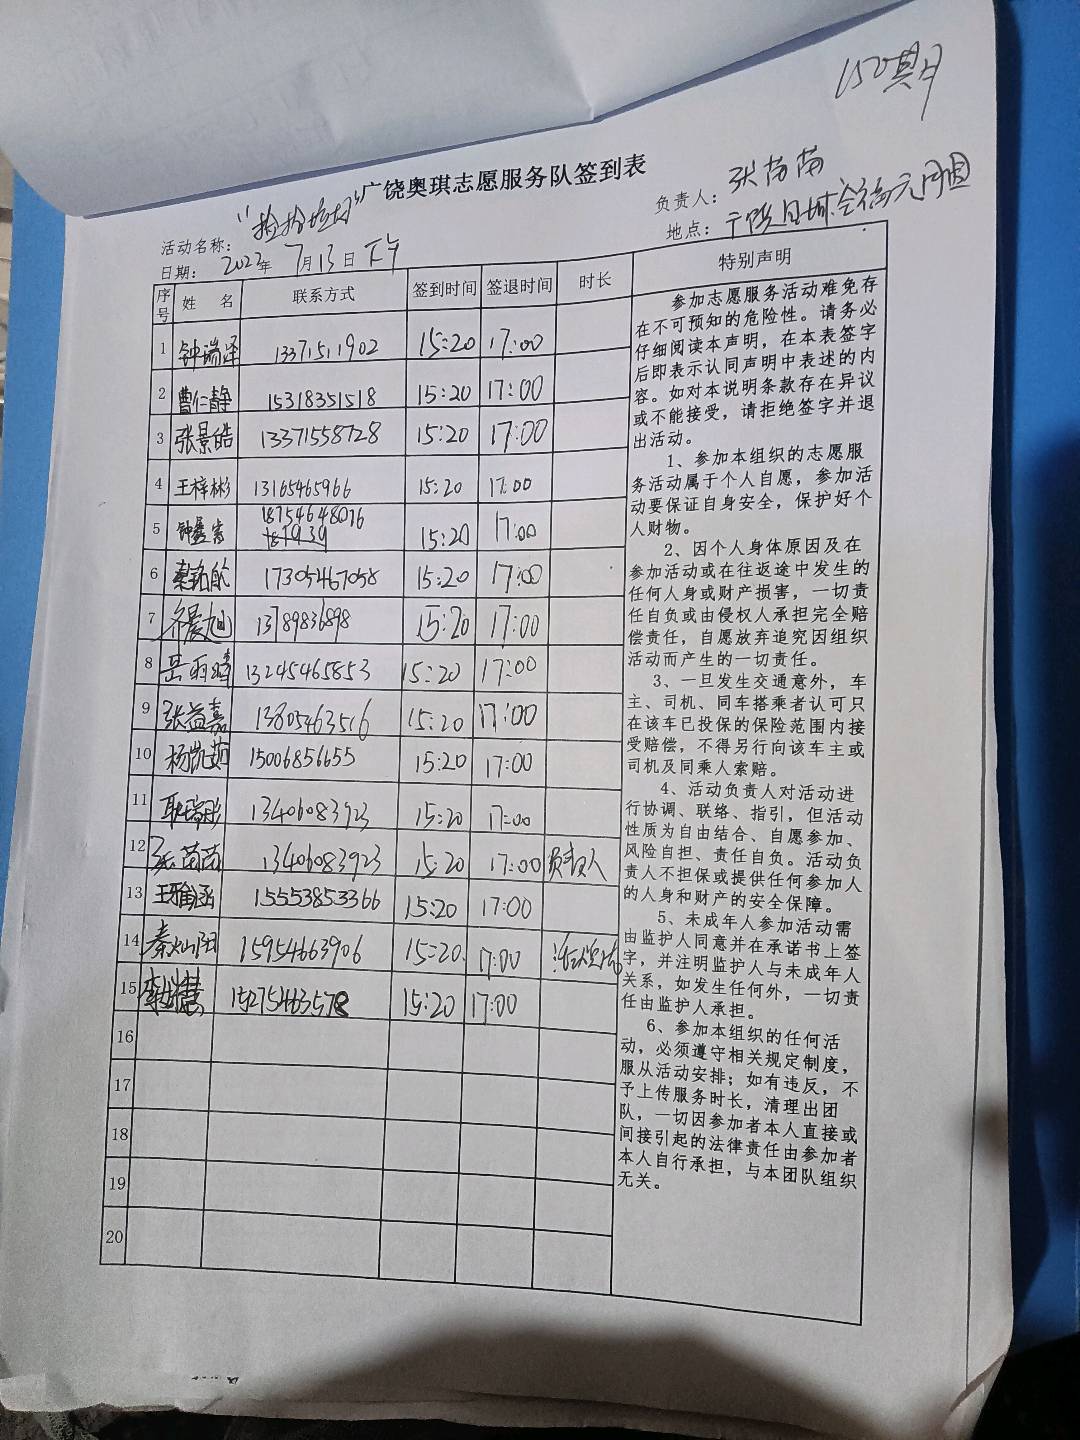 150期
广饶奥琪志愿服务队签到表
活动名称："捡拾垃圾"
负责人：张苗苗
日期：2022年7月13日下午
地点：
序号 姓 名 联系方式 签到时间 签退时间 时长 特别声明
1 钟瑞泽 13371511902 15:20 17:00
2 曹仁静 15318351518 15:20 17:00
3 张景皓 13371558728 15:20 17:00
4 王梓彬 13165465966 15:20 17:00
5 18754648076 15:20 17:00
6 秦铭航 17305467058 15:20 17:00
7 齐晨旭 13789836898 15:20 17:00
8 岳雨晴 13245465853 15:20 17:00
9 张益嘉 13805463516 15:20 17:00
10 杨凯茹 15006856655 15:20 17:00
11 耿瑞彤 13406083923 15:20 17:00
12 张苗苗 13406083923 15:20 17:00 负责人
13 王雅涵 15553853366 15:20 17:00
14 秦灿阳 15954663906 15:20 17:00
15 15275463578 15:20 17:00
16
17
18
19
20
参加志愿服务活动难免存
在不可预知的危险性。请务必
仔细阅读本声明，在本表签字
后即表示认同声明中表述的内
容。如对本说明条款存在异议
或不能接受，请拒绝签字并退
出活动。
1、参加本组织的志愿服
务活动属于个人自愿，参加活
动要保证自身安全，保护好个
人财物。
2、因个人身体原因及在
参加活动或在往返途中发生的
任何人身或财产损害，一切责
任自负或由侵权人承担完全赔
偿责任，自愿放弃追究因组织
活动而产生的一切责任。
3、一旦发生交通意外，车
主、司机、同车搭乘者认可只
在该车已投保的保险范围内接
受赔偿，不得另行向该车主或
司机及同乘人索赔。
4、活动负责人对活动进
行协调、联络、指引，但活动
性质为自由结合、自愿参加、
风险自担、责任自负。活动负
责人不担保或提供任何参加人
的人身和财产的安全保障。
5、未成年人参加活动需
由监护人同意并在承诺书上签
字，并注明监护人与未成年人
关系，如发生任何外，一切责
任由监护人承担。
6、参加本组织的任何活
动，必须遵守相关规定制度，
服从活动安排；如有违反，不
予上传服务时长，清理出团
队，一切因参加者本人直接或
间接引起的法律责任由参加者
本人自行承担，与本团队组织
无关。